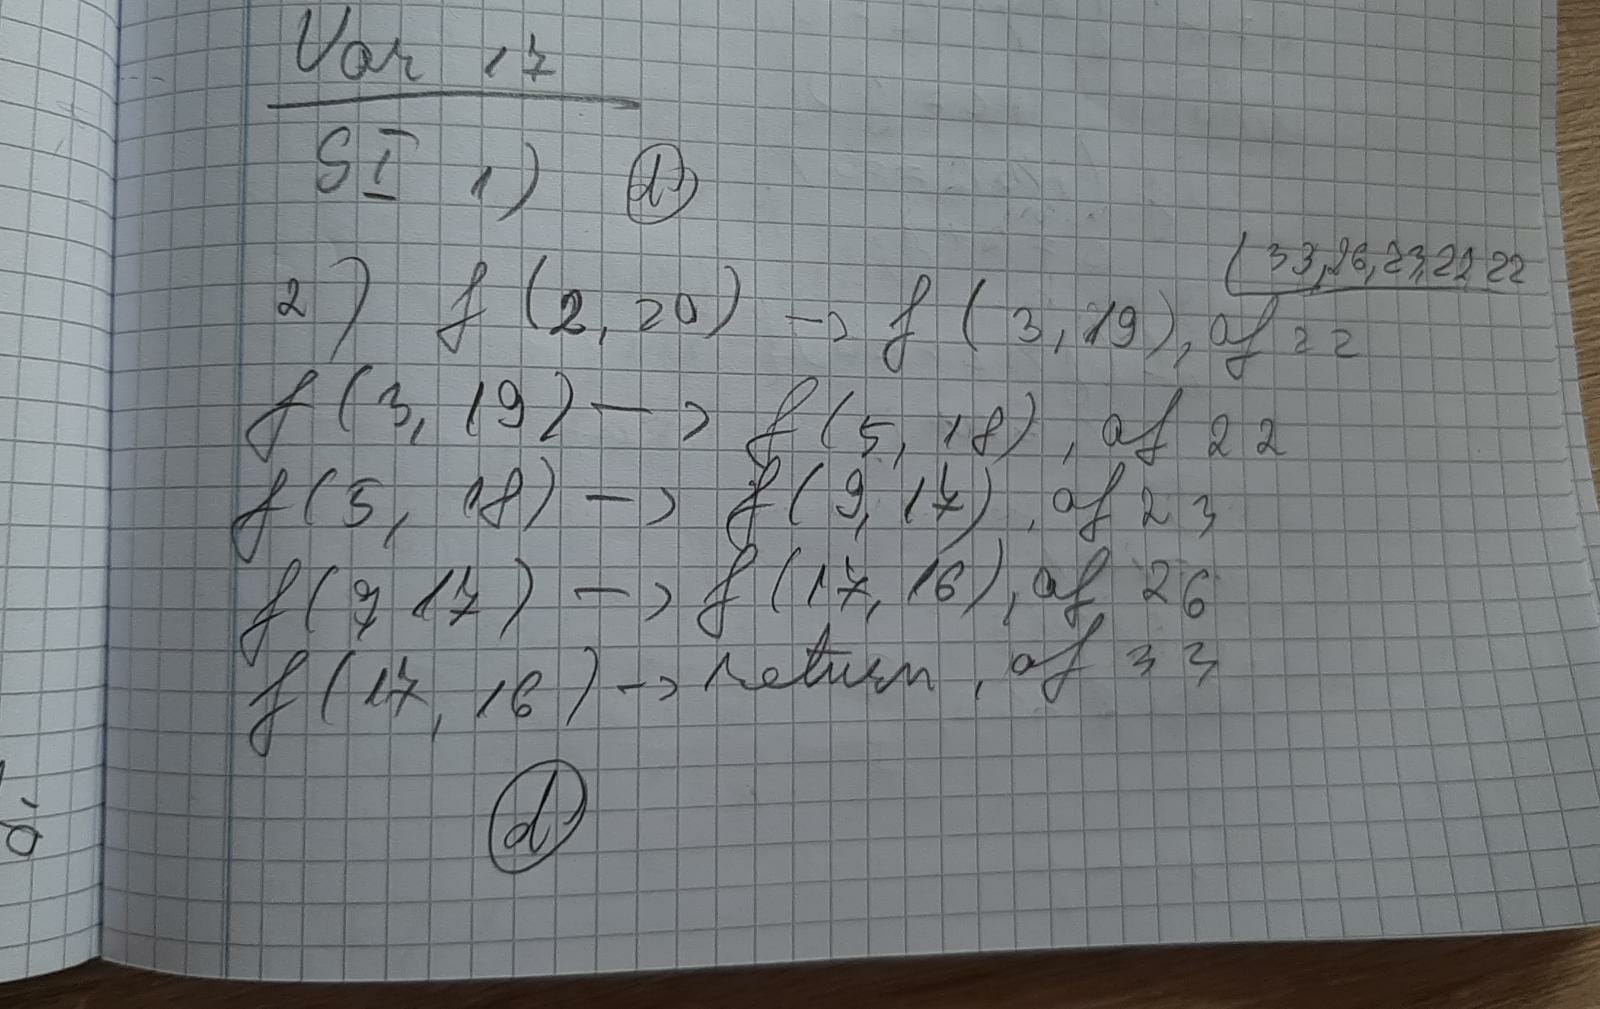 Var 17
SI 1) d)
(33,26,23,22 22
2) f(2,20) -> f(3,19), af 22
f(3, 19) -> f(5, 18), af 22
f(5, 18) -> f(9, 17), af 23
f(9 17) -> f(17, 16), af 26
f(17, 16) -> return, af 33
d)